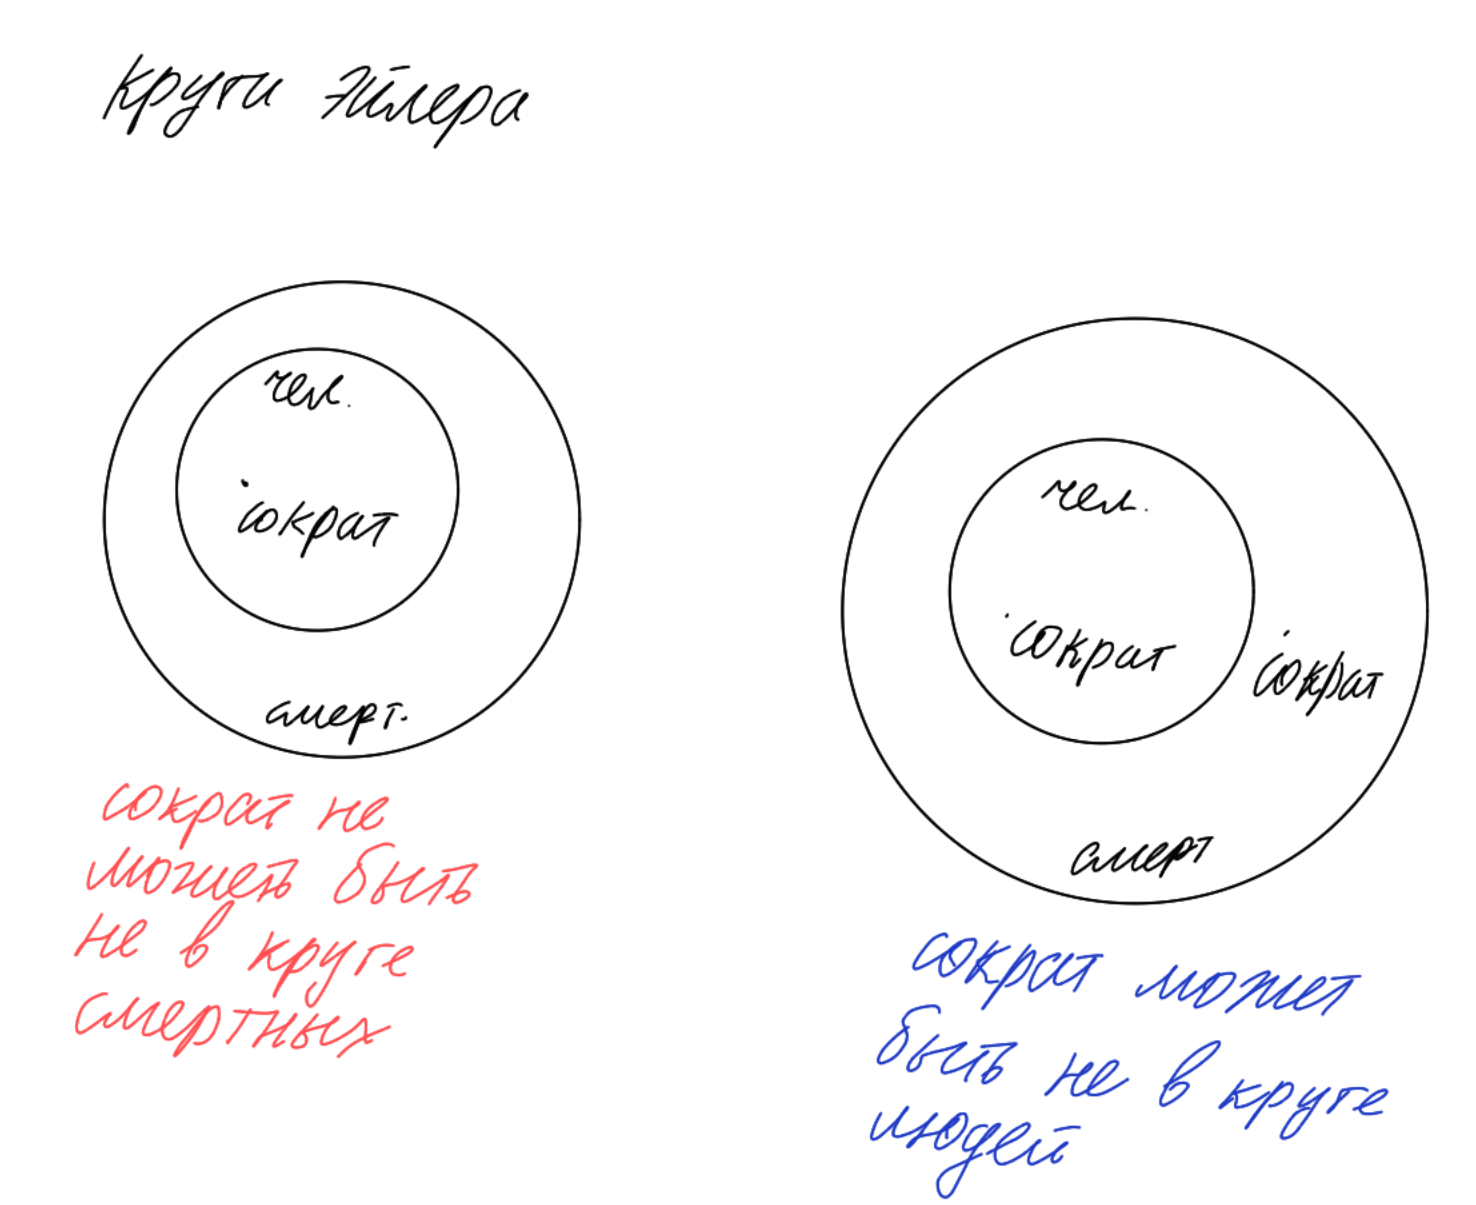 круги эйлера
чел.
сократ
смерт.
сократ не
может быть
не в круге
смертных
чел.
сократ
сократ
смерт
сократ может
быть не в круге
людей